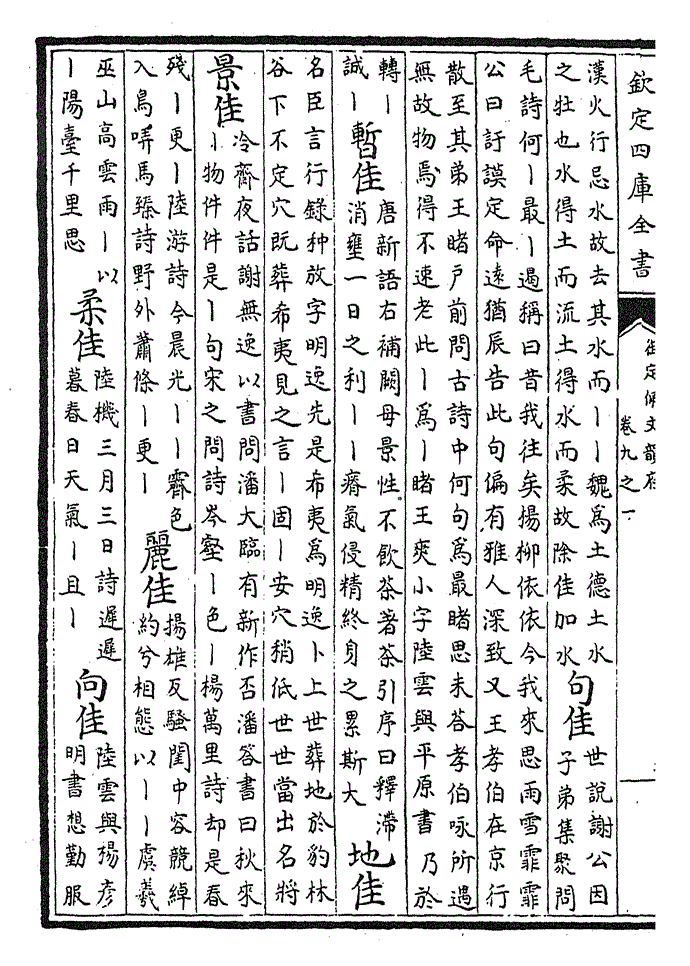 欽定四庫全書
御定佩文韻府
卷九之一
漢火行忌水故去其水而丨丨魏為土德土水
之牡也水得土而流土得水而柔故除佳加水
句佳
世說謝公因
子弟集聚問
毛詩何丨最丨遏稱曰昔我往矣楊柳依依今我來思雨雪霏霏
公曰訏謨定命遠猶辰告此句偏有雅人深致又王孝伯在京行
散至其弟王睹戶前問古詩中何句為最睹思未荅孝伯咏所遇
無故物焉得不速老此丨為丨睹王爽小字陸雲與平原書 乃於
轉丨
誠丨
暫佳
唐新語右補闕母景性不飲茶著茶引序曰釋滯
消壅一日之利丨丨瘠氣侵精終身之累斯大
地佳
名臣言行錄种放字明逸先是希夷為明逸卜上世葬地於豹林
谷下不定穴既葬希夷見之言丨固丨安穴稍低世世當出名將
景佳
冷齋夜話謝無逸以書問潘大臨有新作否潘答書曰秋來
丨物件件是丨句宋之問詩岑壑丨色丨楊萬里詩却是春
殘丨更丨陸游詩今晨光丨丨霽色
入鳥哢馬臻詩野外蕭條丨更丨
麗佳
揚雄反騷閨中容競綽
約兮相態以丨丨虞羲
巫山高雲雨丨以
丨陽臺千里思
柔佳
陸機三月三日詩遲遲
暮春日天氣丨且丨
向佳
陸雲與楊彦
明書想勤服